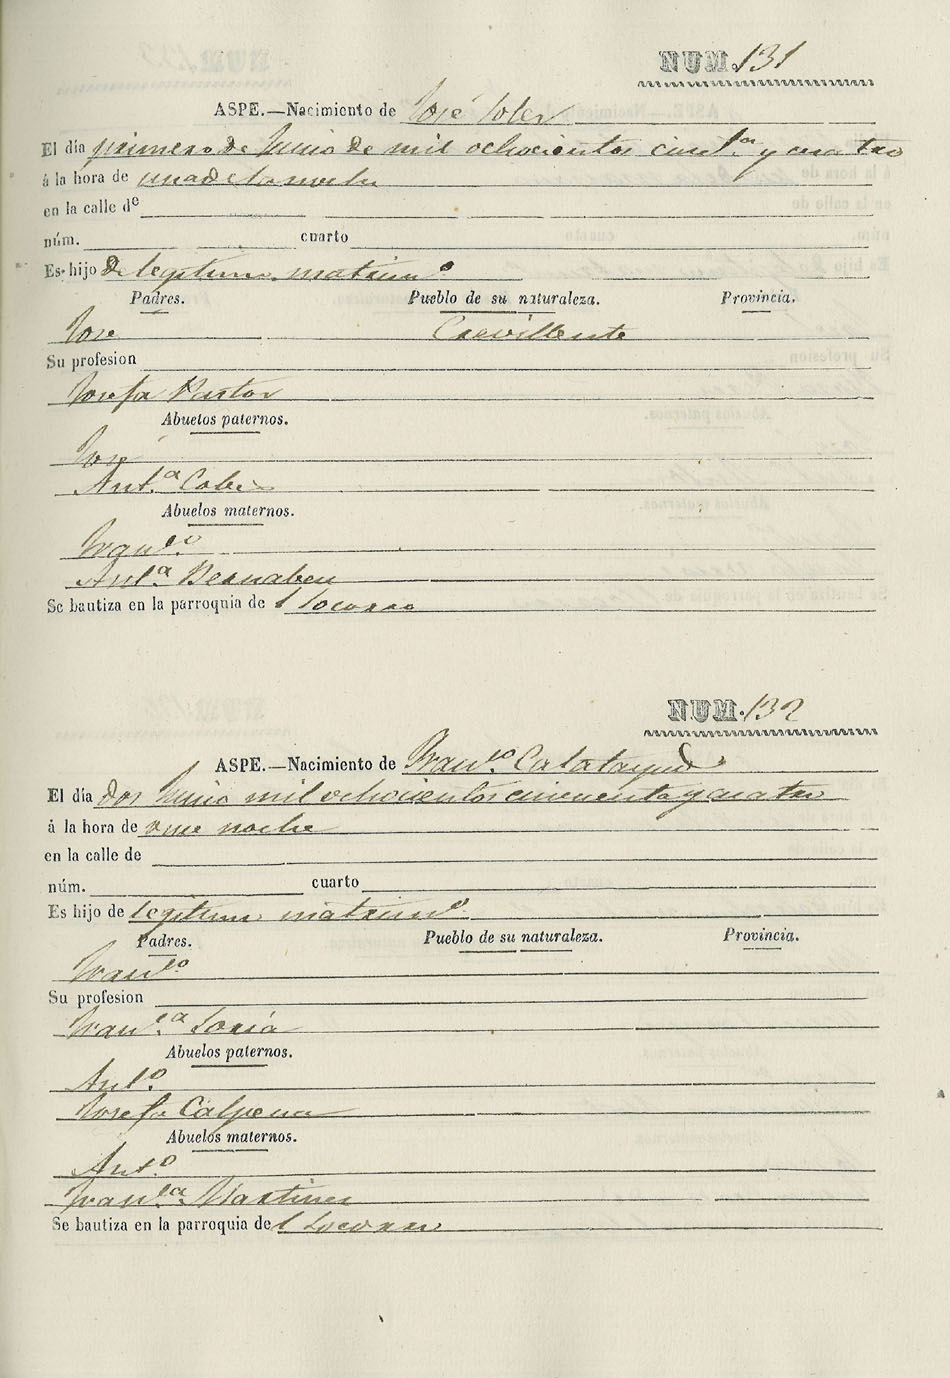 NUM. 131
ASPE.—Nacimiento de José Soler
El dia primero de Junio de mil ochocientos cincta y cuatro
á la hora de una de la noche
en la calle de
núm. cuarto
Es hijo de legitimo matrimo
Padres. Pueblo de su naturaleza. Provincia.
Jose Crevillente
Su profesion
Josefa Pastor
Abuelos paternos.
Jose
Anta
Abuelos maternos.
Franco
Anta Bernabeu
Se bautiza en la parroquia de l Socorro
NUM. 132
ASPE.—Nacimiento de Franco Calatayud
El dia dos Junio mil ochocientos cincuenta y cuatro
á la hora de once noche
en la calle de
núm. cuarto
Es hijo de legitimo matrimo
Padres. Pueblo de su naturaleza. Provincia.
Franco
Su profesion
Franca Soria
Abuelos paternos.
Anto
Josefa Calpena
Abuelos maternos.
Anto
Franca Martinez
Se bautiza en la parroquia de l Socorro